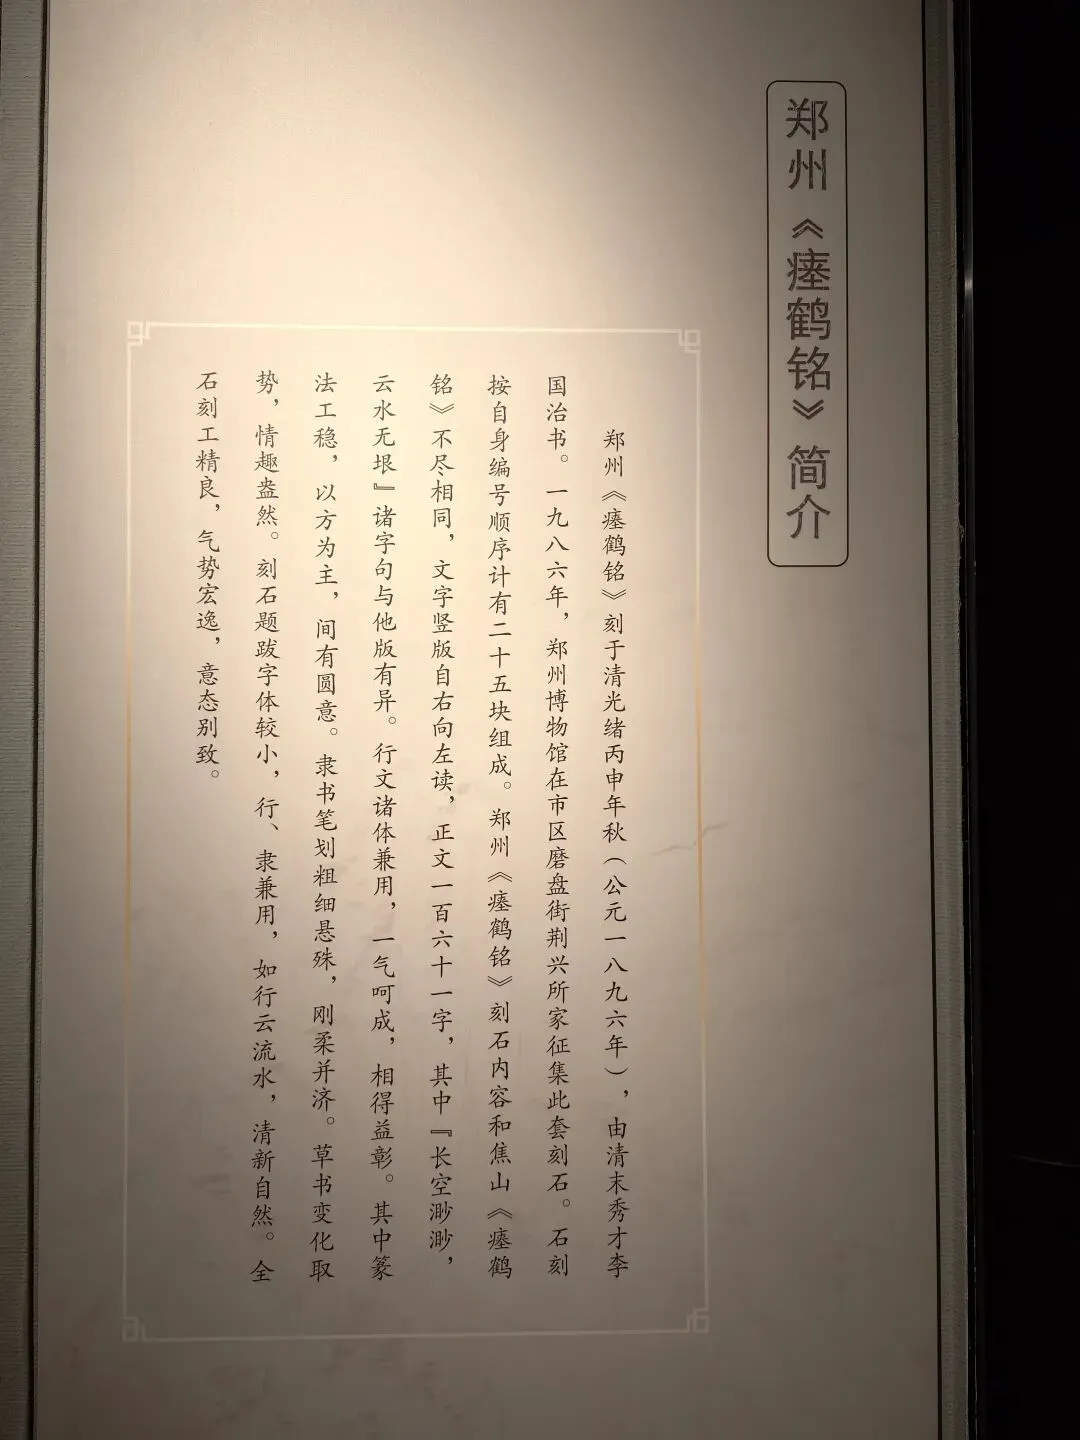 郑州《瘗鹤铭》简介
郑州《瘗鹤铭》刻于清光绪丙申年秋（公元一八九六年），由清末秀才李
国治书。一九八六年，郑州博物馆在市区磨盘街荆兴所家征集此套刻石。石刻
按自身编号顺序计有二十五块组成。郑州《瘗鹤铭》刻石内容和焦山《瘗鹤
铭》不尽相同，文字竖版自右向左读，正文一百六十一字，其中『长空渺渺，
云水无垠』诸字句与他版有异。行文诸体兼用，一气呵成，相得益彰。其中篆
法工稳，以方为主，间有圆意。隶书笔划粗细悬殊，刚柔并济。草书变化取
势，情趣盎然。刻石题跋字体较小，行、隶兼用，如行云流水，清新自然。全
石刻工精良，气势宏逸，意态别致。